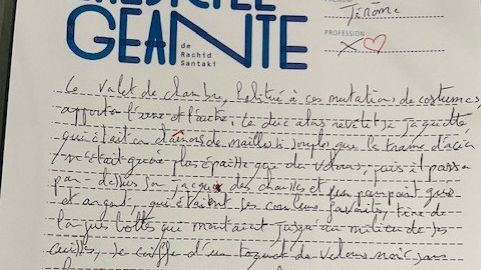 GÉANTE
de
Rachid
Santaki
Jérôme
PROFESSION
Le valet de chambre, habitué à ces mutations de costumes,
apporta Le duc alors revêtit sa jaquette
qui était en de mailles si souples que la trame d'acier
n'était guère plus épaisse que du velours, puis il passa
par dessus son des chausses et un pourpoint gris
et argent, qui étaient ses couleurs favorites, tira de
longues bottes qui montaient jusqu'au milieu de ses
cuisses, se coiffa d'un toquet de velours noir sans